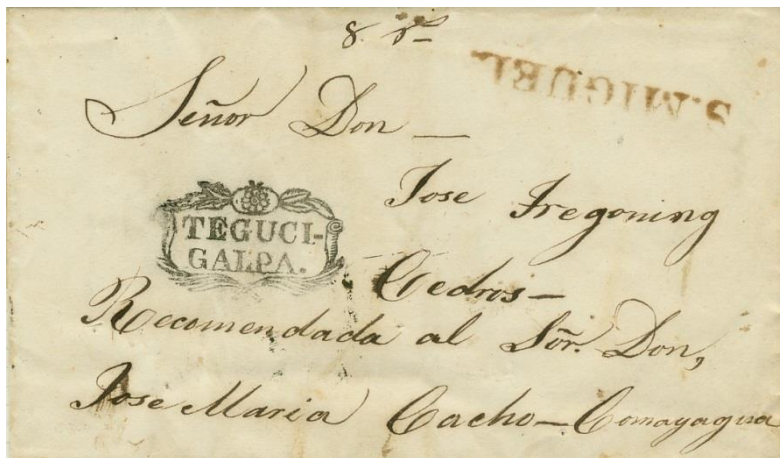 8 rs
S. MIGUEL
Señor Don —
Jose Tregoning
TEGUCI-
GALPA.
Cedros —
Recomendada al Sōr. Don,
Jose Maria Cacho — Comayagua